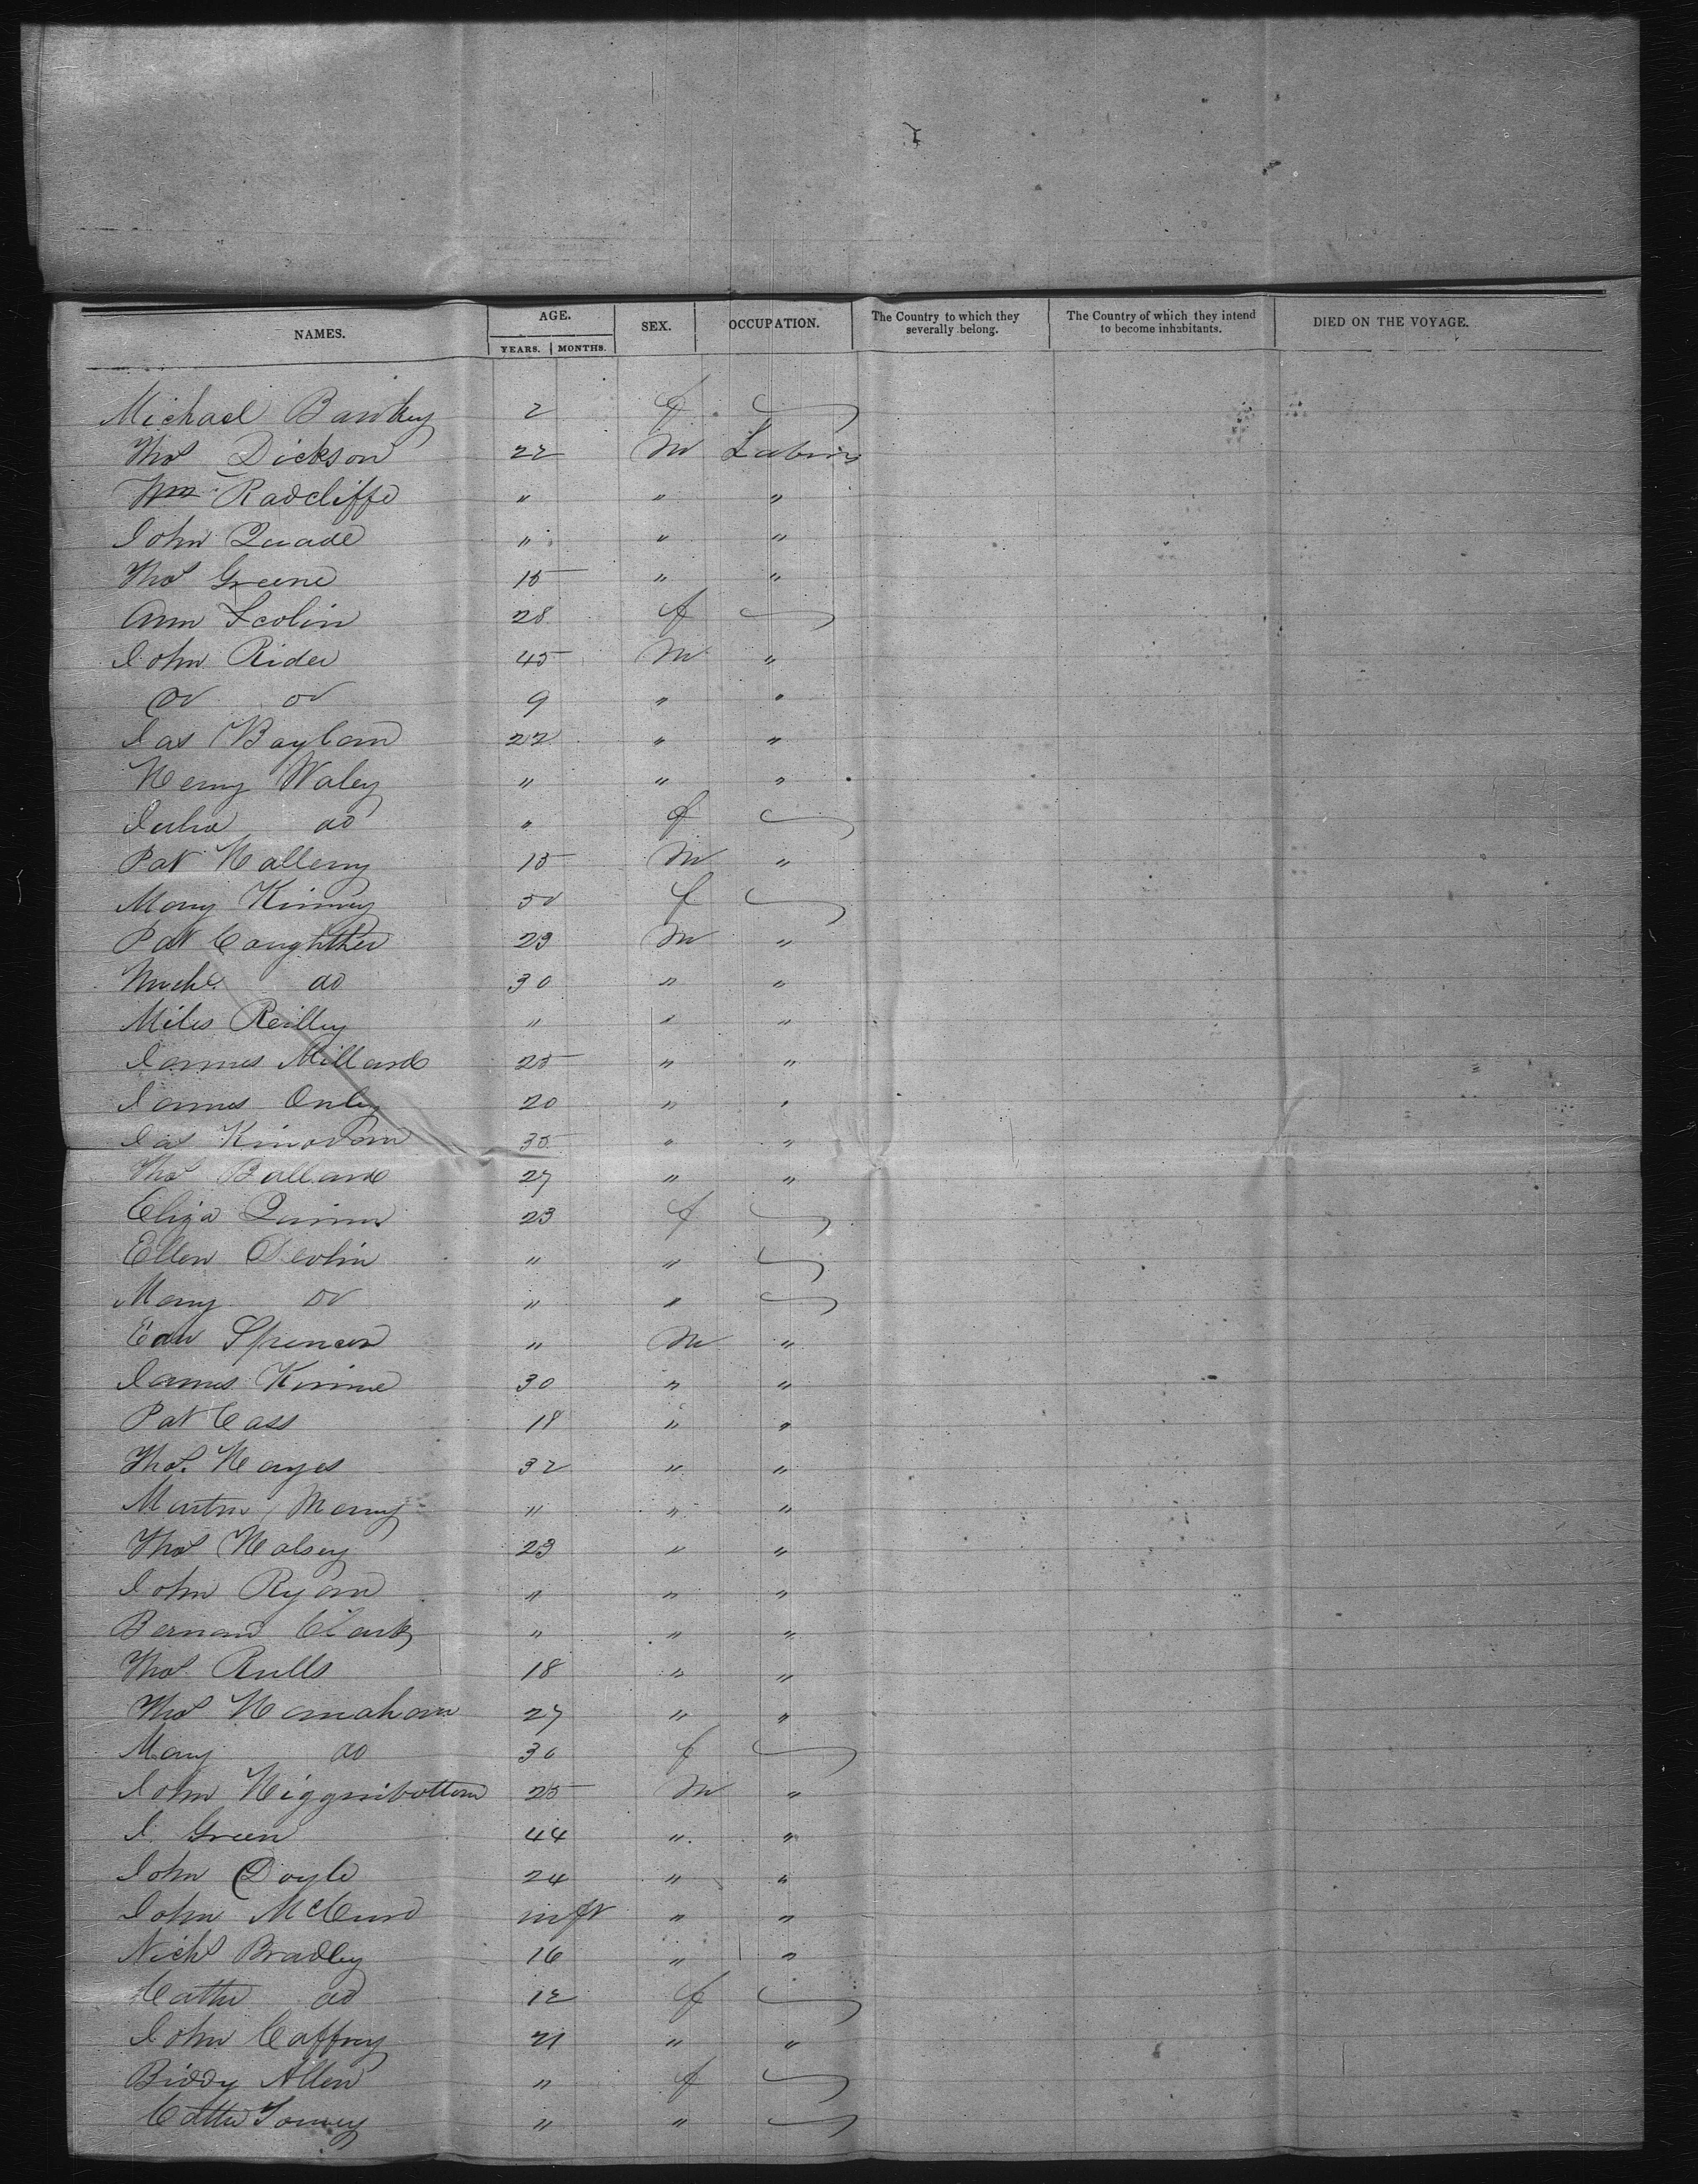 NAMES. AGE. SEX. OCCUPATION. The Country to which they severally belong. The Country of which they intend to become inhabitants. DIED ON THE VOYAGE.
YEARS. MONTHS.
Michael 2 f
Thos Dickson 22 M Labrs
Wm Radcliffe " " "
John Quade " " "
Thos Greene 15 " "
Ann Scolin 28 f
John Rider 45 M "
do do 9 " "
Jas Boylan 22 " "
Henry Waley " " "
Julia do " f
Pat Hallery 15 M "
Mary Kinney 50 f
Pat 23 M "
Michl do 30 " "
Miles Reilley " " "
James Millard 25 " "
James Onley 20 " "
Jas 35 " "
Thos Ballard 27 " "
Eliza Quinn 23 f
Ellen Devlin " "
Mary do " "
Edw Spencer " M "
James Kinnie 30 " "
Pat Cass 18 " "
Thos. Hayes 32 " "
Martin " " "
Thos Halsey 23 " "
John Ryan " " "
Bernard Clark " " "
Thos Rulls 18 " "
Thos Hanahan 27 " "
Mary do 30 f
John Higginbottom 25 M "
J. Green 44 " "
John Doyle 24 " "
John inft " "
Nichs Bradley 16 " "
Cathe do 12 f
John Caffrey 21 " "
Biddy Allen " f
Cathe " "